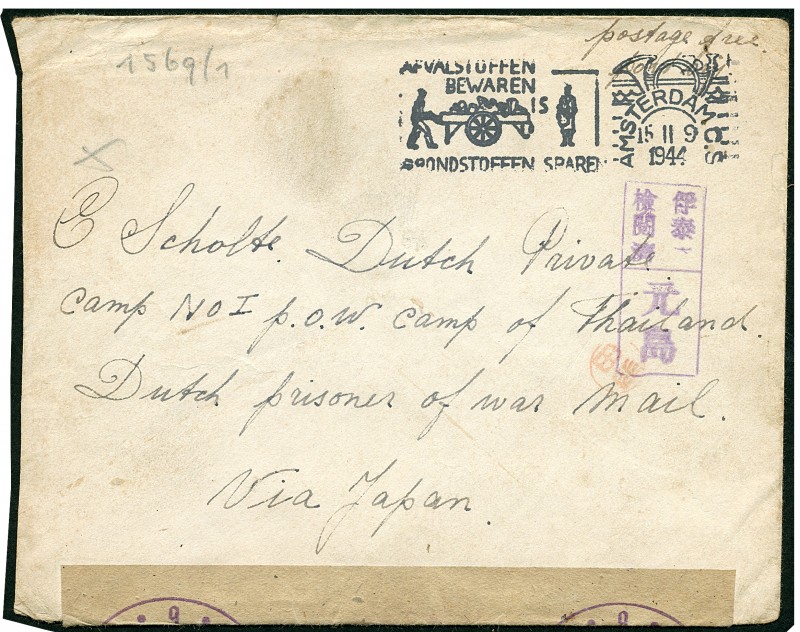 1569/1
postage free.
AFVALSTOFFEN
BEWAREN
IS
GRONDSTOFFEN SPAREN
AMSTERDAM
15 II 9
1944
E Scholte. Dutch Private
Camp No I p.o.w. Camp of Thailand.
Dutch prisoner of war mail.
Via Japan.
俘泰
検閲済
元島
9
9